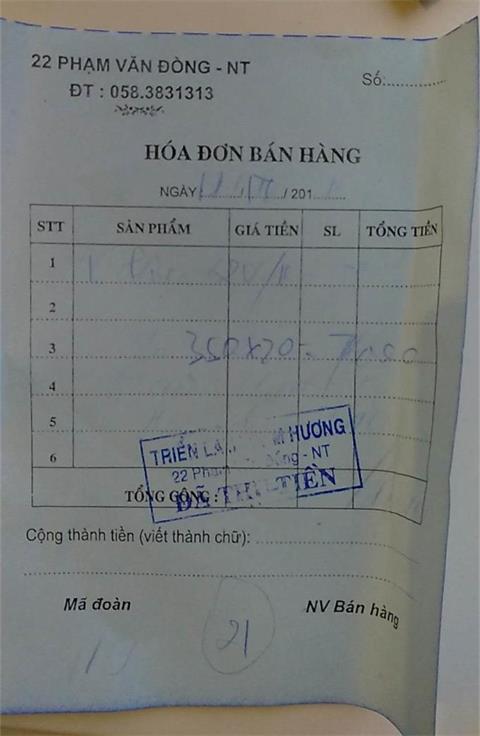 22 PHẠM VĂN ĐÒNG - NT
Số:..............
ĐT : 058.3831313
HÓA ĐƠN BÁN HÀNG
NGÀY ......../......../ 201........
STT SẢN PHẨM GIÁ TIỀN SL TỔNG TIỀN
1
2
3 350x20 =
4
5
6
TRIỂN LÃ HƯƠNG
22 Phạ Đồng - NT
TỔNG CỘNG :
ĐÃ THU TIỀN
Cộng thành tiền (viết thành chữ): 
Mã đoàn NV Bán hàng
21